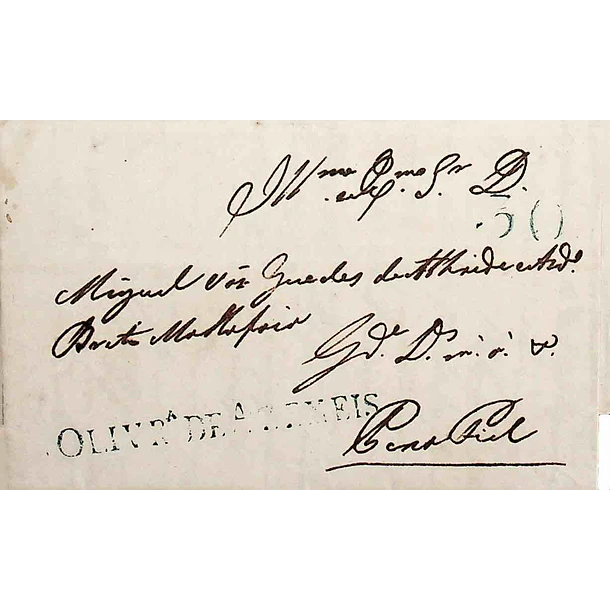 Illmo. e Exmo. Sr. D.
50
Miguel Vaz Guedes de Athaide
Brito Mallafaia
Gde. Ds. m. a. &.
OLIVRA DE AZEMEIS
Penafiel